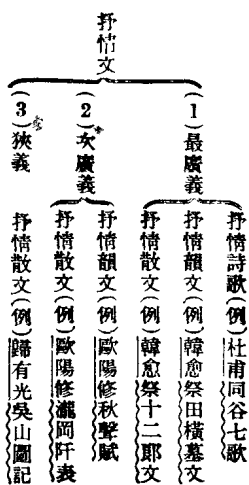 抒情文
(1)最廣義
抒情詩歌(例)杜甫同谷七歌
抒情韻文(例)韓愈祭田橫墓文
抒情散文(例)韓愈祭十二郎文
(2)次廣義
抒情韻文(例)歐陽修秋聲賦
抒情散文(例)歐陽修瀧岡阡表
(3)狹義
抒情散文(例)歸有光吳山圖記